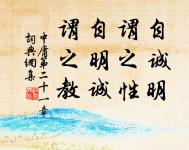 自诚明
謂之性
自明诚
謂之教
中庸第二十一章
詞典網集